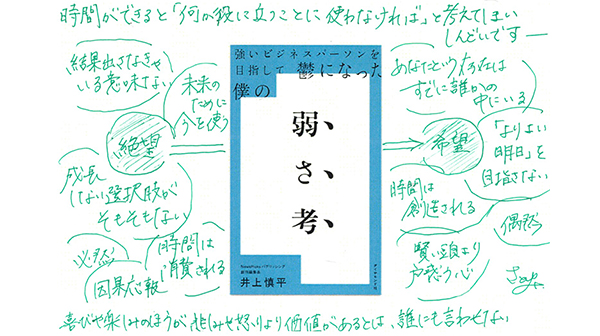 時間ができると「何か役に立つことに使わなければ」と考えてしまい
しんどいです―
結果出さなきゃ
いる意味ない
未来の
ために
今を使う
絶望
成長
しない選択肢が
そもそもない
必然
因果応報
時間は
消費される
強いビジネスパーソンを
目指して鬱になった
僕の
弱さ考
井上慎平
ダイヤモンド社
あなたという存在は
すでに誰かの
中にいる
希望
「よりよい
明日」を
目指さない
時間は
創造される
偶然
賢い頭より
戸惑う心
喜びや楽しみのほうが悲しみや怒りより価値があるとは、誰にも言わせない